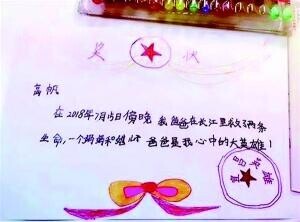 奖 状
高帆
在2018年7月15日傍晚 我爸爸在长江里救了两条
生命,一个和 爸爸是我心中的大英雄!